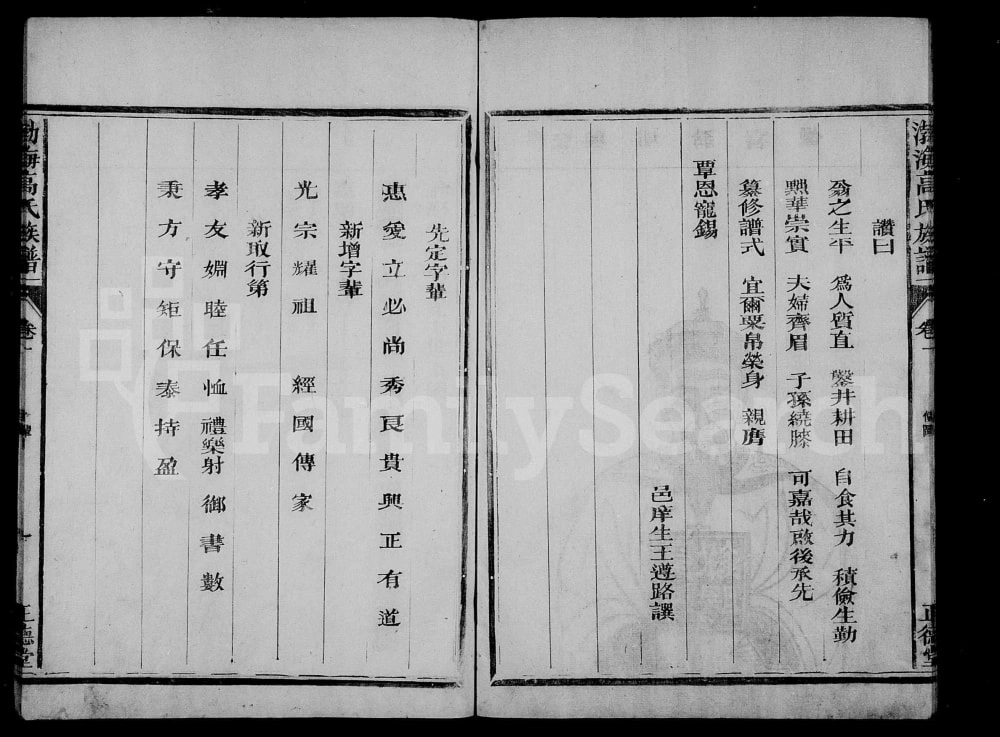 渤海高氏族譜
卷一
傳贊
正德堂
讚曰
翁之生平 爲人質直 鑿井耕田 自食其力 積儉生勤
黜華崇實 夫婦齊眉 子孫繞膝 可嘉哉啟後承先
纂修譜式 宜爾粟帛榮身 親膺
覃恩寵錫
邑庠生王遵路譔
先定字輩
惠愛立必尚秀良貴興正有道
新增字輩
光宗耀祖 經國傳家
新取行第
孝友婣睦任恤禮樂射御書數
秉方守矩保泰持盈
渤海高氏族譜
卷一
字輩
一
正德堂
FamilySearch